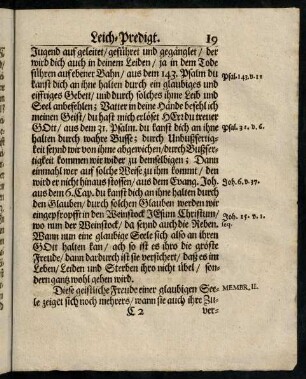 Leich-Predigt. 19
Jugend auf geleitet/ geführet und gegänglet/ der
wird dich auch in deinem Leiden/ ja in dem Tode
führen auf ebener Bahn/ aus dem 143. Psalm du
kanst dich an ihne halten durch ein glaubiges und
eiffriges Gebett/ und durch solches ihme Leib und
Seel anbefehlen; Vatter in deine Hände befehl ich
meinen Geist/ du hast mich erlöset HErr du treuer
GOtt/ aus dem 31. Psalm. du kanst dich an ihne
halten durch wahre Busse; durch Unbußfertig-
keit seynd wir von ihme abgewichen/ durch Bußfer-
tigkeit kommen wir wider zu demselbigen; Dann
einmahl wer auf solche Weise zu ihm kommt/ den
wird er nicht hinaus stossen/ aus dem Evang. Joh.
aus dem 6. Cap. du kanst dich an ihne halten durch
den Glauben/ durch solchen Glauben werden wir
eingepfropfft in den Weinstock JEsum Christum/
wo nun der Weinstock/ da seynd auch die Reben.
Wann nun eine glaubige Seele sich also an ihren
GOtt halten kan/ ach so ist es ihro die gröste
Freude/ dann dardurch ist sie versichert/ daß es im
Leben/ Leiden und Sterben ihro nicht übel/ son-
dern gantz wohl gehen wird.
Diese geistliche Freude einer glaubigen See-
le zeiget sich noch mehrers/ wann sie auch ihre Zu-
C 2 ver-
Psal. 143. v. 11
Psal. 31. v. 6.
Joh. 6. v. 37.
Joh. 15. v. 1.
seq.
MEMBR. II.